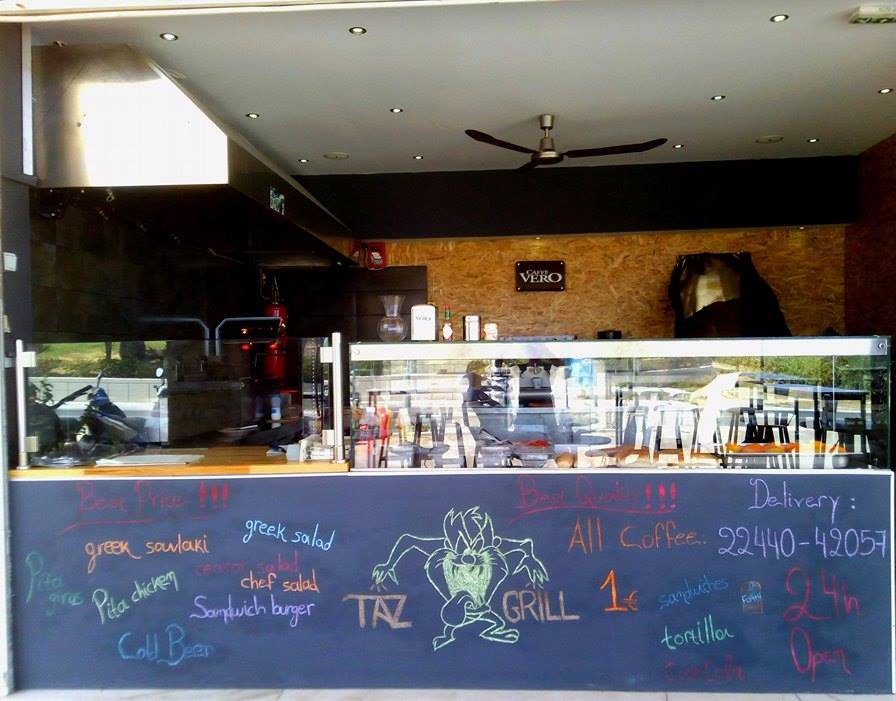 CAFFÈ
VERO
Best Price !!!
greek souvlaki
greek salad
Pita
giros
Pita chicken
ceasar salad
chef salad
Sandwich burger
Cold Beer
TAZ GRILL
Best Quality !!!
All Coffee:
1€
Delivery :
22440-42057
sandwiches
tortilla
Coca Cola
24h
Open